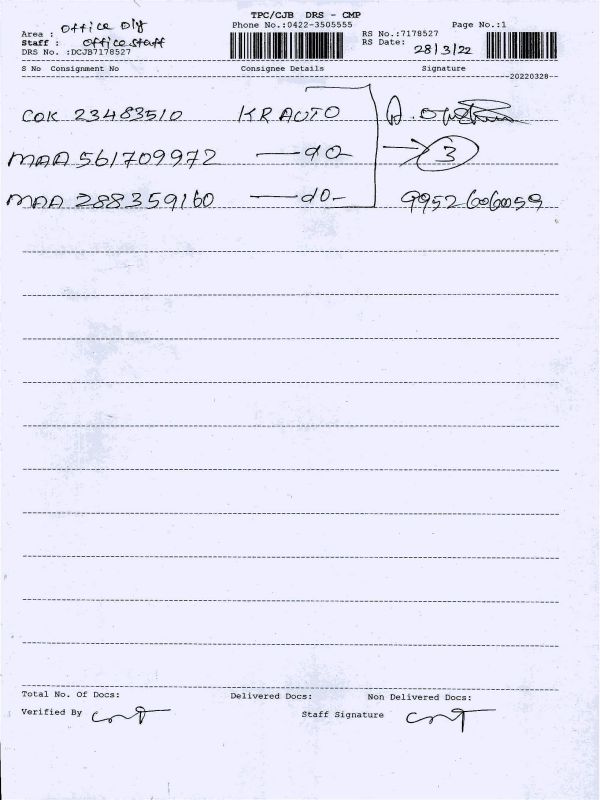 TPC/CJB DRS - CMP
Area : office Dly
Phone No.:0422-3505555
Page No.:1
RS No.:7178527
Staff : office staff
RS Date: 28/3/22
DRS No. :DCJB7178527
S No Consignment No Consignee Details Signature
20220328
COK 23483510 KR AUTO
MAA 561709972 do 3
MAA 288359160 do 9952606059
Total No. Of Docs: Delivered Docs: Non Delivered Docs:
Verified By Staff Signature